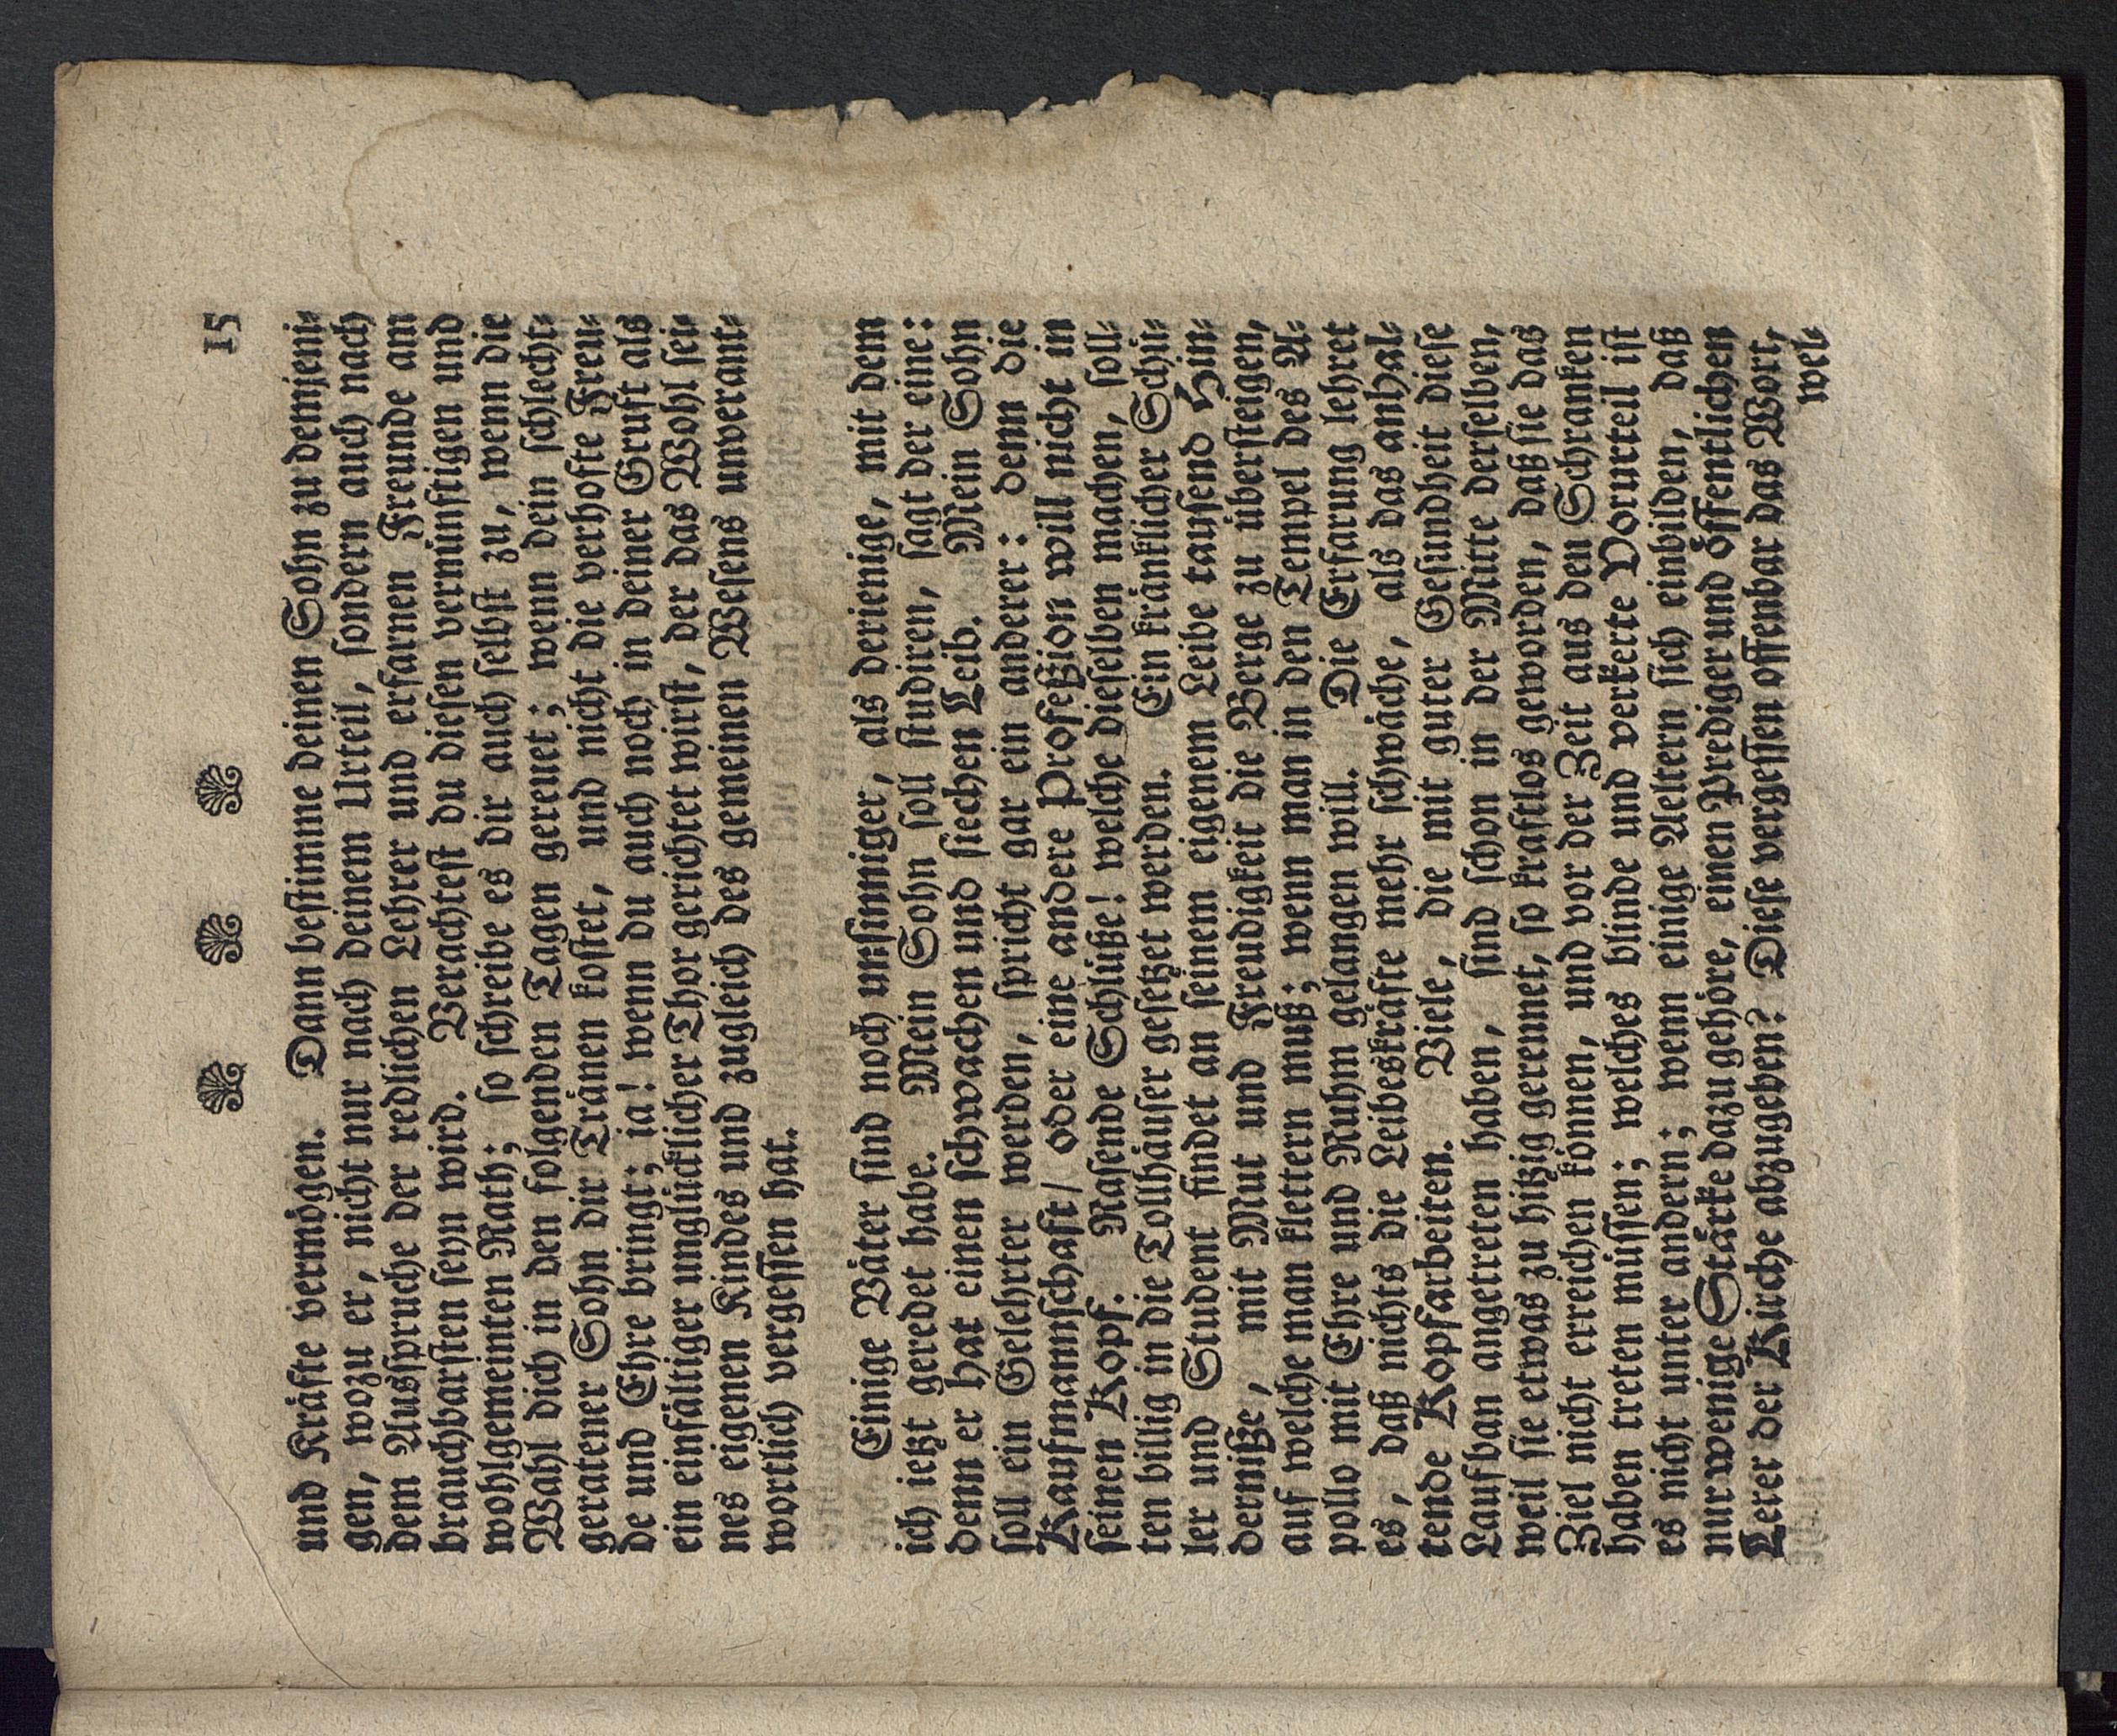 15
und Kräfte vermögen. Dann bestimme deinen Sohn zu demjeni-
gen, wozu er, nicht nur nach deinem Urteil, sondern auch nach
dem Ausspruche der redlichen Lehrer und erfarnen Freunde am
brauchbarsten seyn wird. Verachtest du diesen vernünftigen und
wohlgemeinten Rath; so schreibe es dir auch selbst zu, wenn die
Wahl dich in den folgenden Tagen gereuet; wenn dein schlecht-
geratener Sohn dir Tränen kostet, und nicht die verhofte Freu-
de und Ehre bringt; ja! wenn du auch noch in deiner Gruft als
ein einfältiger unglücklicher Thor gerichtet wirst, der das Wohl sei-
nes eigenen Kindes und zugleich des gemeinen Wesens unverant-
wortlich vergessen hat.
Einige Väter sind noch unsinniger, als derienige, mit dem
ich ietzt geredet habe. Mein Sohn soll studiren, sagt der eine:
denn er hat einen schwachen und siechen Leib. Mein Sohn
soll ein Gelehrter werden, spricht gar ein anderer: denn die
Kaufmannschaft/ oder eine andere Profeßion will nicht in
seinen Kopf. Rasende Schlüße! welche dieselben machen, soll-
ten billig in die Tollhäuser gesetzet werden. Ein kränklicher Schü-
ler und Student findet an seinem eigenem Leibe tausend Hin-
derniße, mit Mut und Freudigkeit die Berge zu übersteigen,
auf welche man klettern muß; wenn man in den Tempel des A-
pollo mit Ehre und Ruhm gelangen will. Die Erfarung lehret
es, daß nichts die Leibeskräfte mehr schwäche, als das anhal-
tende Kopfarbeiten. Viele, die mit guter Gesundheit diese
Laufban angetreten haben, sind schon in der Mitte derselben,
weil sie etwas zu hitzig gerennet, so kraftlos geworden, daß sie das
Ziel nicht erreichen können, und vor der Zeit aus den Schranken
haben treten müssen; welches blinde und verkerte Vorurteil ist
es nicht unter andern; wenn einige Aeltern sich einbilden, daß
nur wenige Stärke dazu gehöre, einen Prediger und öffentlichen
Lerer der Kirche abzugeben? Diese vergessen offenbar das Wort,
wel-